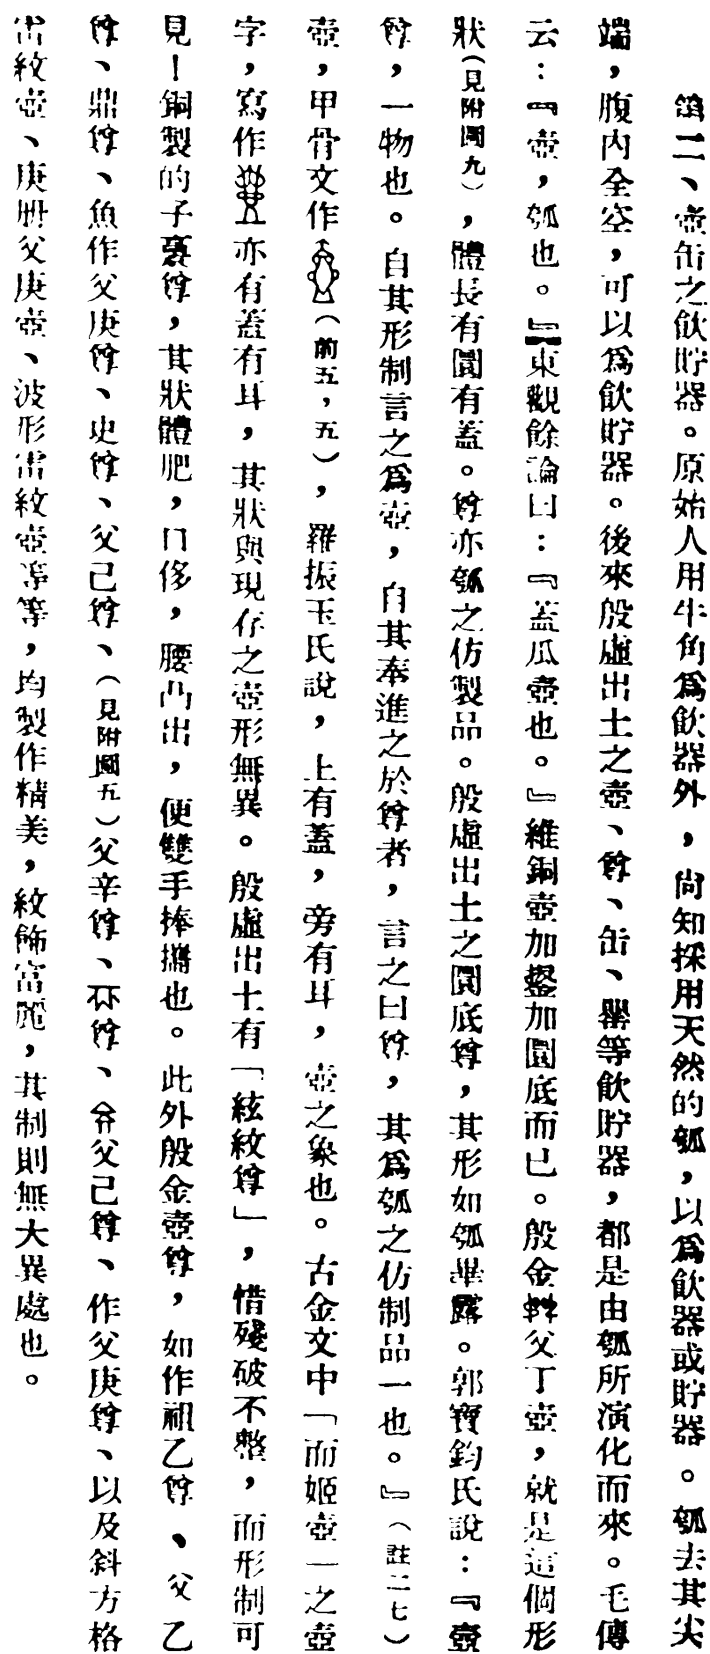 第二、壺缶之飲貯器。原始人用牛角爲飲器外，尚知採用天然的瓠，以爲飲器或貯器。瓠去其尖
端，腹內全空，可以爲飲貯器。後來殷虛出土之壺、尊、缶、罍等飲貯器，都是由瓠所演化而來。毛傳
云：『壺，瓠也。』東觀餘論曰：『蓋瓜壺也。』維銅壺加鋬加圜底而已。殷金父丁壺，就是這個形
狀（見附圖九），體長有圜有蓋。尊亦瓠之仿製品。殷虛出土之圜底尊，其形如瓠畢露。郭寶鈞氏說：『壺
尊，一物也。自其形制言之爲壺，自其奉進之於尊者，言之曰尊，其爲瓠之仿制品一也。』（註二七）
壺，甲骨文作（前五，五），羅振玉氏說，上有蓋，旁有耳，壺之象也。古金文中「而姬壺」之壺
字，寫作亦有蓋有耳，其狀與現存之壺形無異。殷虛出土有「絃紋尊」，惜殘破不整，而形制可
見！銅製的子尊，其狀體肥，口侈，腰凸出，便雙手捧攜也。此外殷金壺尊，如作祖乙尊、父乙
尊、鼎尊、魚作父庚尊、史尊、父己尊、（見附圖五）父辛尊、尊、父己尊、作父庚尊、以及斜方格
雷紋壺、庚册父庚壺、波形雷紋壺等等，均製作精美，紋飾富麗，其制則無大異處也。